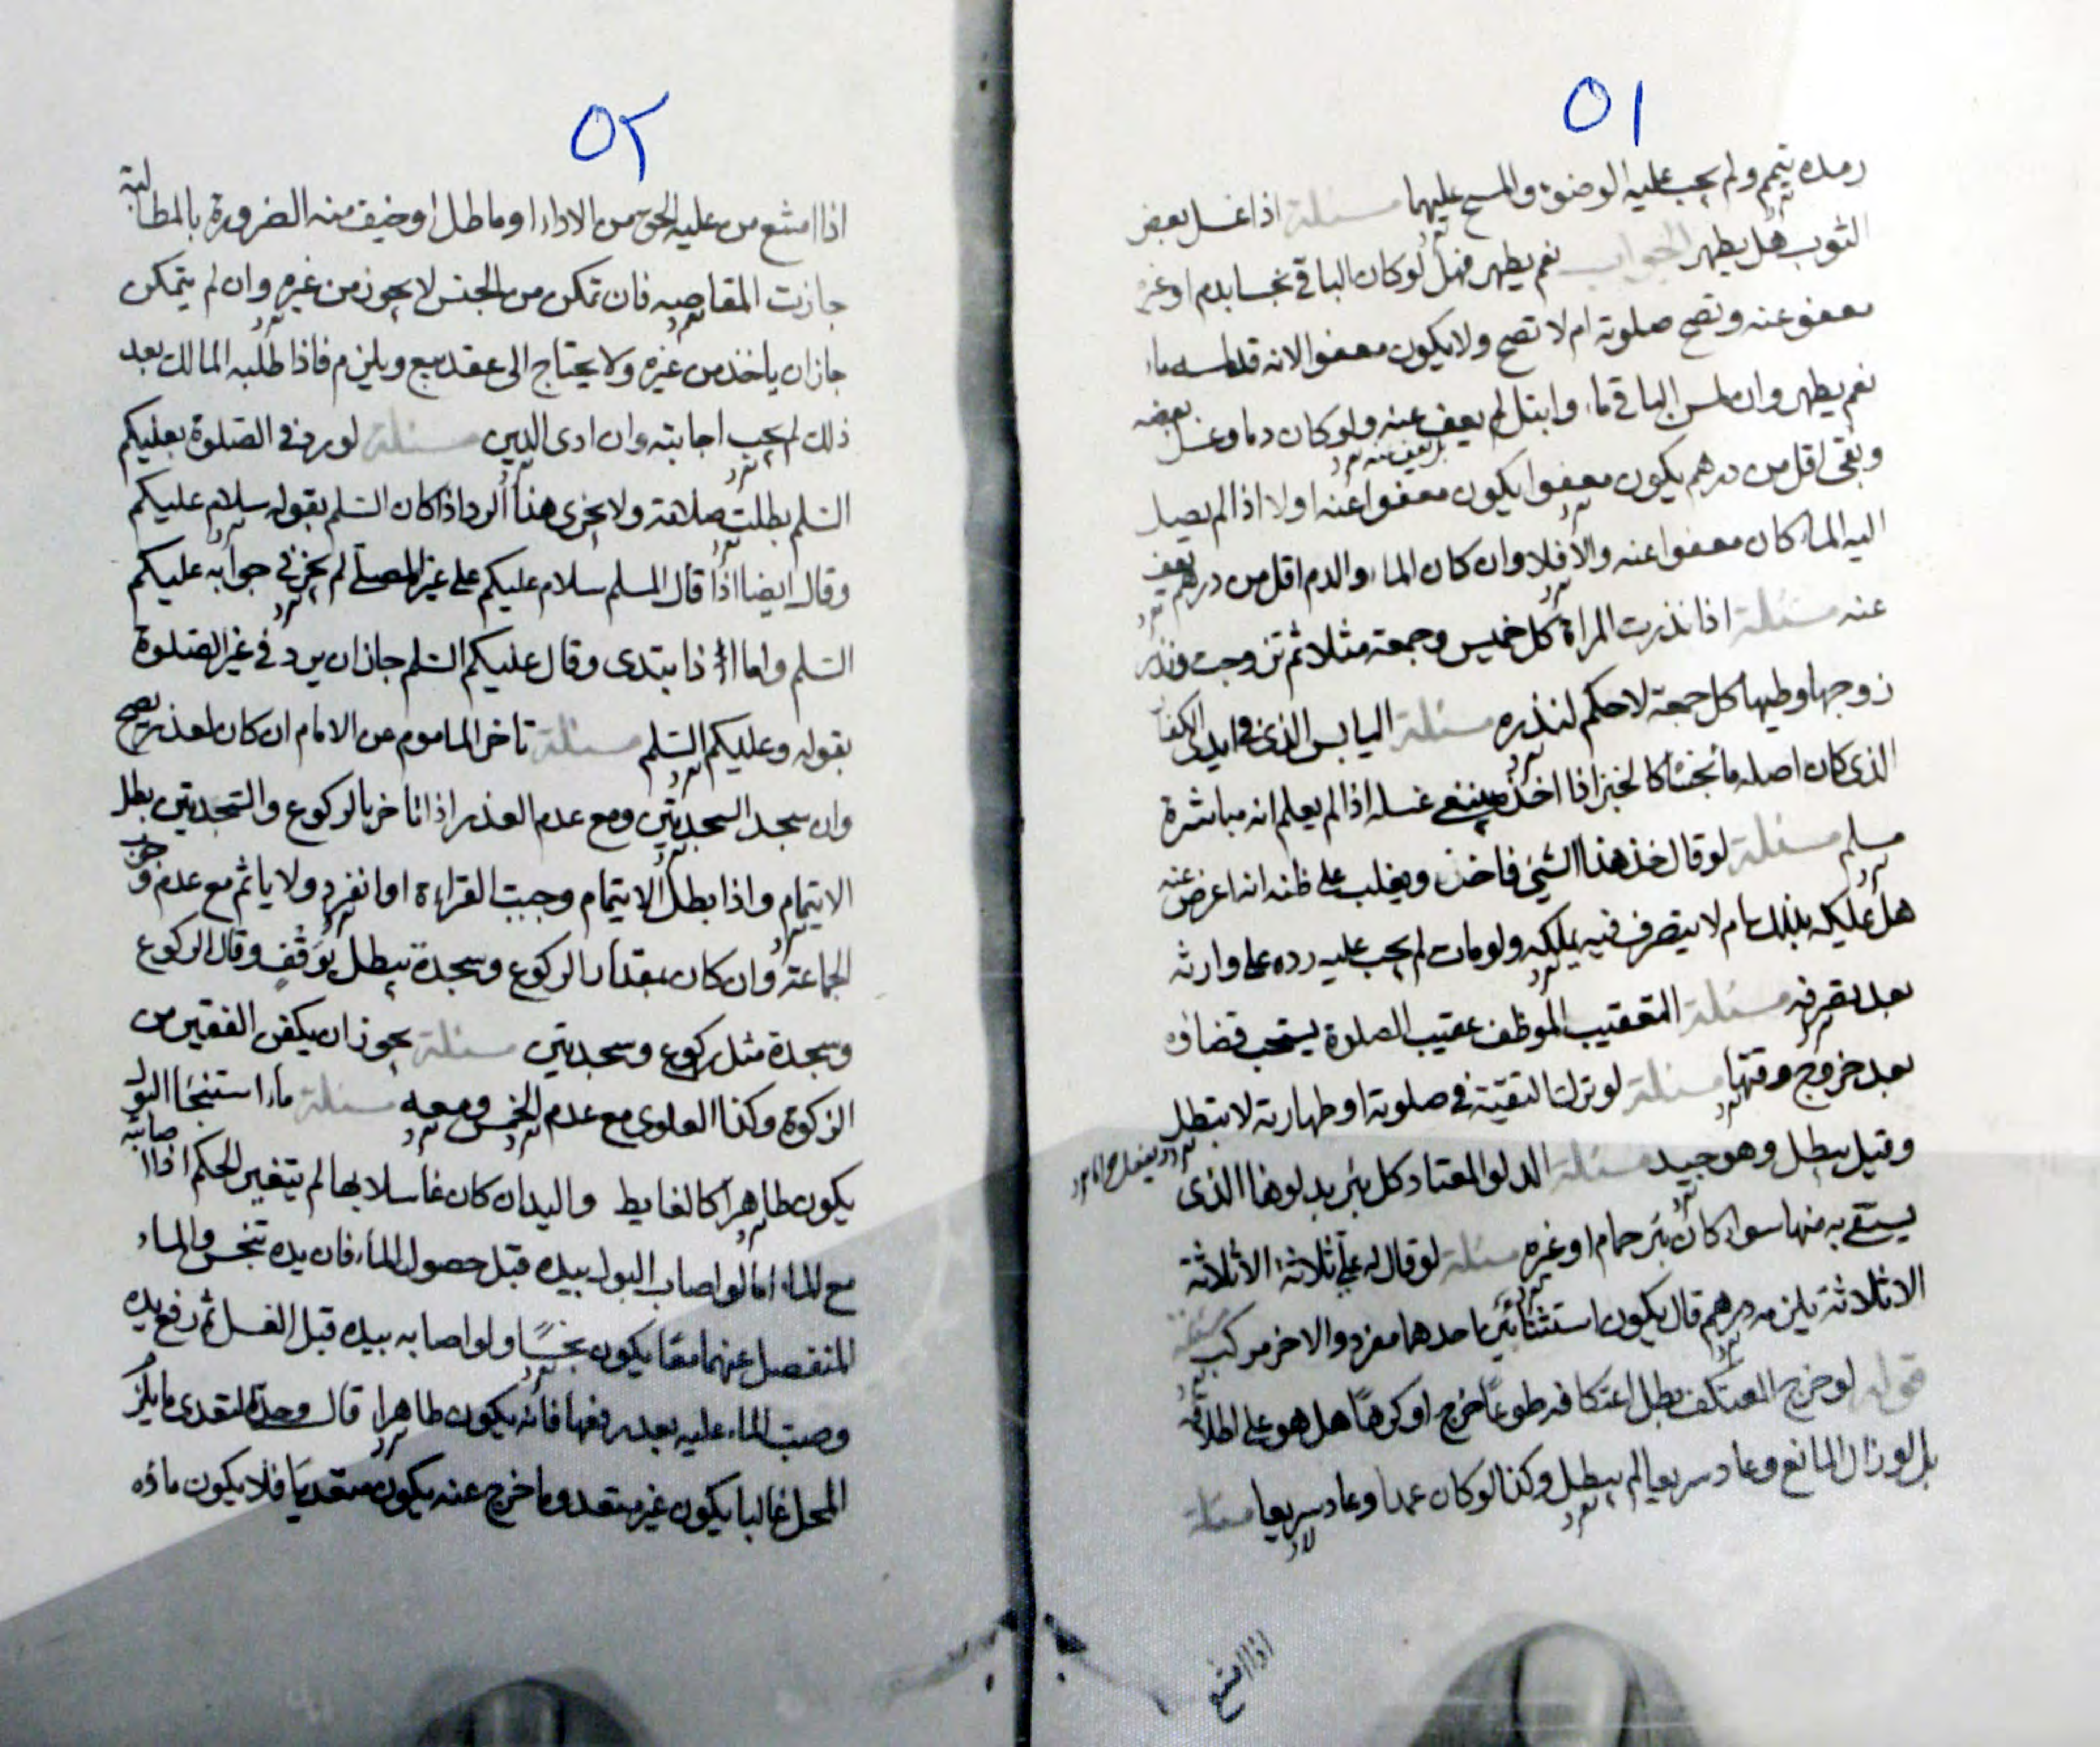 ٥١
رمده تيمم ولم يجب عليه الوضوء والمسح عليهما مسئلة اذا غسل بعض
الثوب هل يطهر الجواب نعم يطهر فهل لو كان الباقي نجسا بدم او غيره
معفو عنه وتصح صلوته ام لا تصح ولا يكون معفوا لانه قد ماسه ماء
نعم يطهر وان ماس الباقي ماء وابتل لم يعف عنه ولو كان دما وغسل بعضه
وبقى اقل من درهم يكون معفوا يكون معفوا عنه اولا اذا لم يصل
اليه الماء كان معفوا عنه والا فلا وان كان الماء والدم اقل من درهم يعف
عنه مسئلة اذا نذرت المراة كل خميس وجمعة مثلا ثم تزوجت ونذر
زوجها وطيها كل جمعة لا حكم لنذره مسئلة اليابس الذي في ايدى الكفار
الذى كان اصله مائجسا كالخبز اذا اخذ ينبغى غسله اذا لم يعلم انه مباشرة
مسلم مسئلة لو قال خذ هذا الشئ فاخذ ويغلب على ظنه انه اعرض عنه
هل يملكه بذلك ام لا يتصرف فيه يملكه ولو مات لم يجب عليه رده على وارثه
بعد تصرفه مسئلة التعقيب الموظف عقيب الصلوة يستحب قضاؤه
بعد خروج وقتها مسئلة لو ترك التقيّة في صلوته او طهارته لا يبطل
وقيل يبطل وهو جيد مسئلة الدلو المعتاد كل بئر بدلوها الذى
يستقى به منها سواء كان بئر حمام او غيره مسئلة لو قال له علي ثلاثة الا ثلاثة
الا ثلاثة يلزمه درهم قال يكون استثنائين احدهما مفرد والاخر مركب مسئلة
قوله لو خرج المعتكف بطل اعتكافه طوعا خرج او كرها هل هو على اطلاقه
بل لو زال المانع وعاد سريعا لم يبطل وكذا لو كان عمدا وعاد سريعا مسئلة
اذا امتنع
٥٢
اذا امتنع من عليه الحق من الاداء او ماطل او خيف منه الضرورة بالمطالبة
جازت المقاصه فان تمكن من الجنس لا يجوز من غيره وان لم يتمكن
جاز ان ياخذ من غيره ولا يحتاج الى عقد بيع ويلزم فاذا طلبه المالك بعد
ذلك لم يجب اجابته وان ادى الدين مسئلة لو رد في الصلوة بعليكم
السلم بطلت صلاته ولا يجزى هذا الرد اذا كان السلم بقوله سلام عليكم
وقال ايضا اذا قال المسلم سلام عليكم على غير المصلى لم يجز في جوابه عليكم
السلم واما اذا ابتدى وقال عليكم السلم جاز ان يرد في غير الصلوة
بقوله وعليكم السلم مسئلة تاخر الماموم عن الامام ان كان لعذر يصح
وان سجد السجدتين ومع عدم العذر اذا تاخر بالركوع والسجدتين بطل
الايتمام واذا بطل الايتمام وجبت القراءة او انفرد ولا ياثم مع عدم وجوب
الجماعة وان كان بمقدار الركوع وسجدة يبطل توقف وقال الركوع
وسجدة مثل ركوع وسجدتين مسئلة يجوز ان يكفن الفقير من
الزكوة وكذا العلوى مع عدم الخمس ومعه مسئلة ماء استنجا البول
يكون طاهرا كالغايط واليد ان كان غاسلا بها لم يتغير الحكم اذا اصابته
مع الماء اما لو اصاب البول بيده قبل حصول الماء فان يده تنجس والماء
المنفصل عنهما معا يكون نجسًا ولو اصابه بيده قبل الغسل ثم رفع يده
وصب الماء عليه بعد رفعها فانه يكون طاهرا قال وحد المتعدى ما يلز
المحل غالبا يكون غير متعد وما خرج عنه يكون متعديا فلا يكون ماؤه